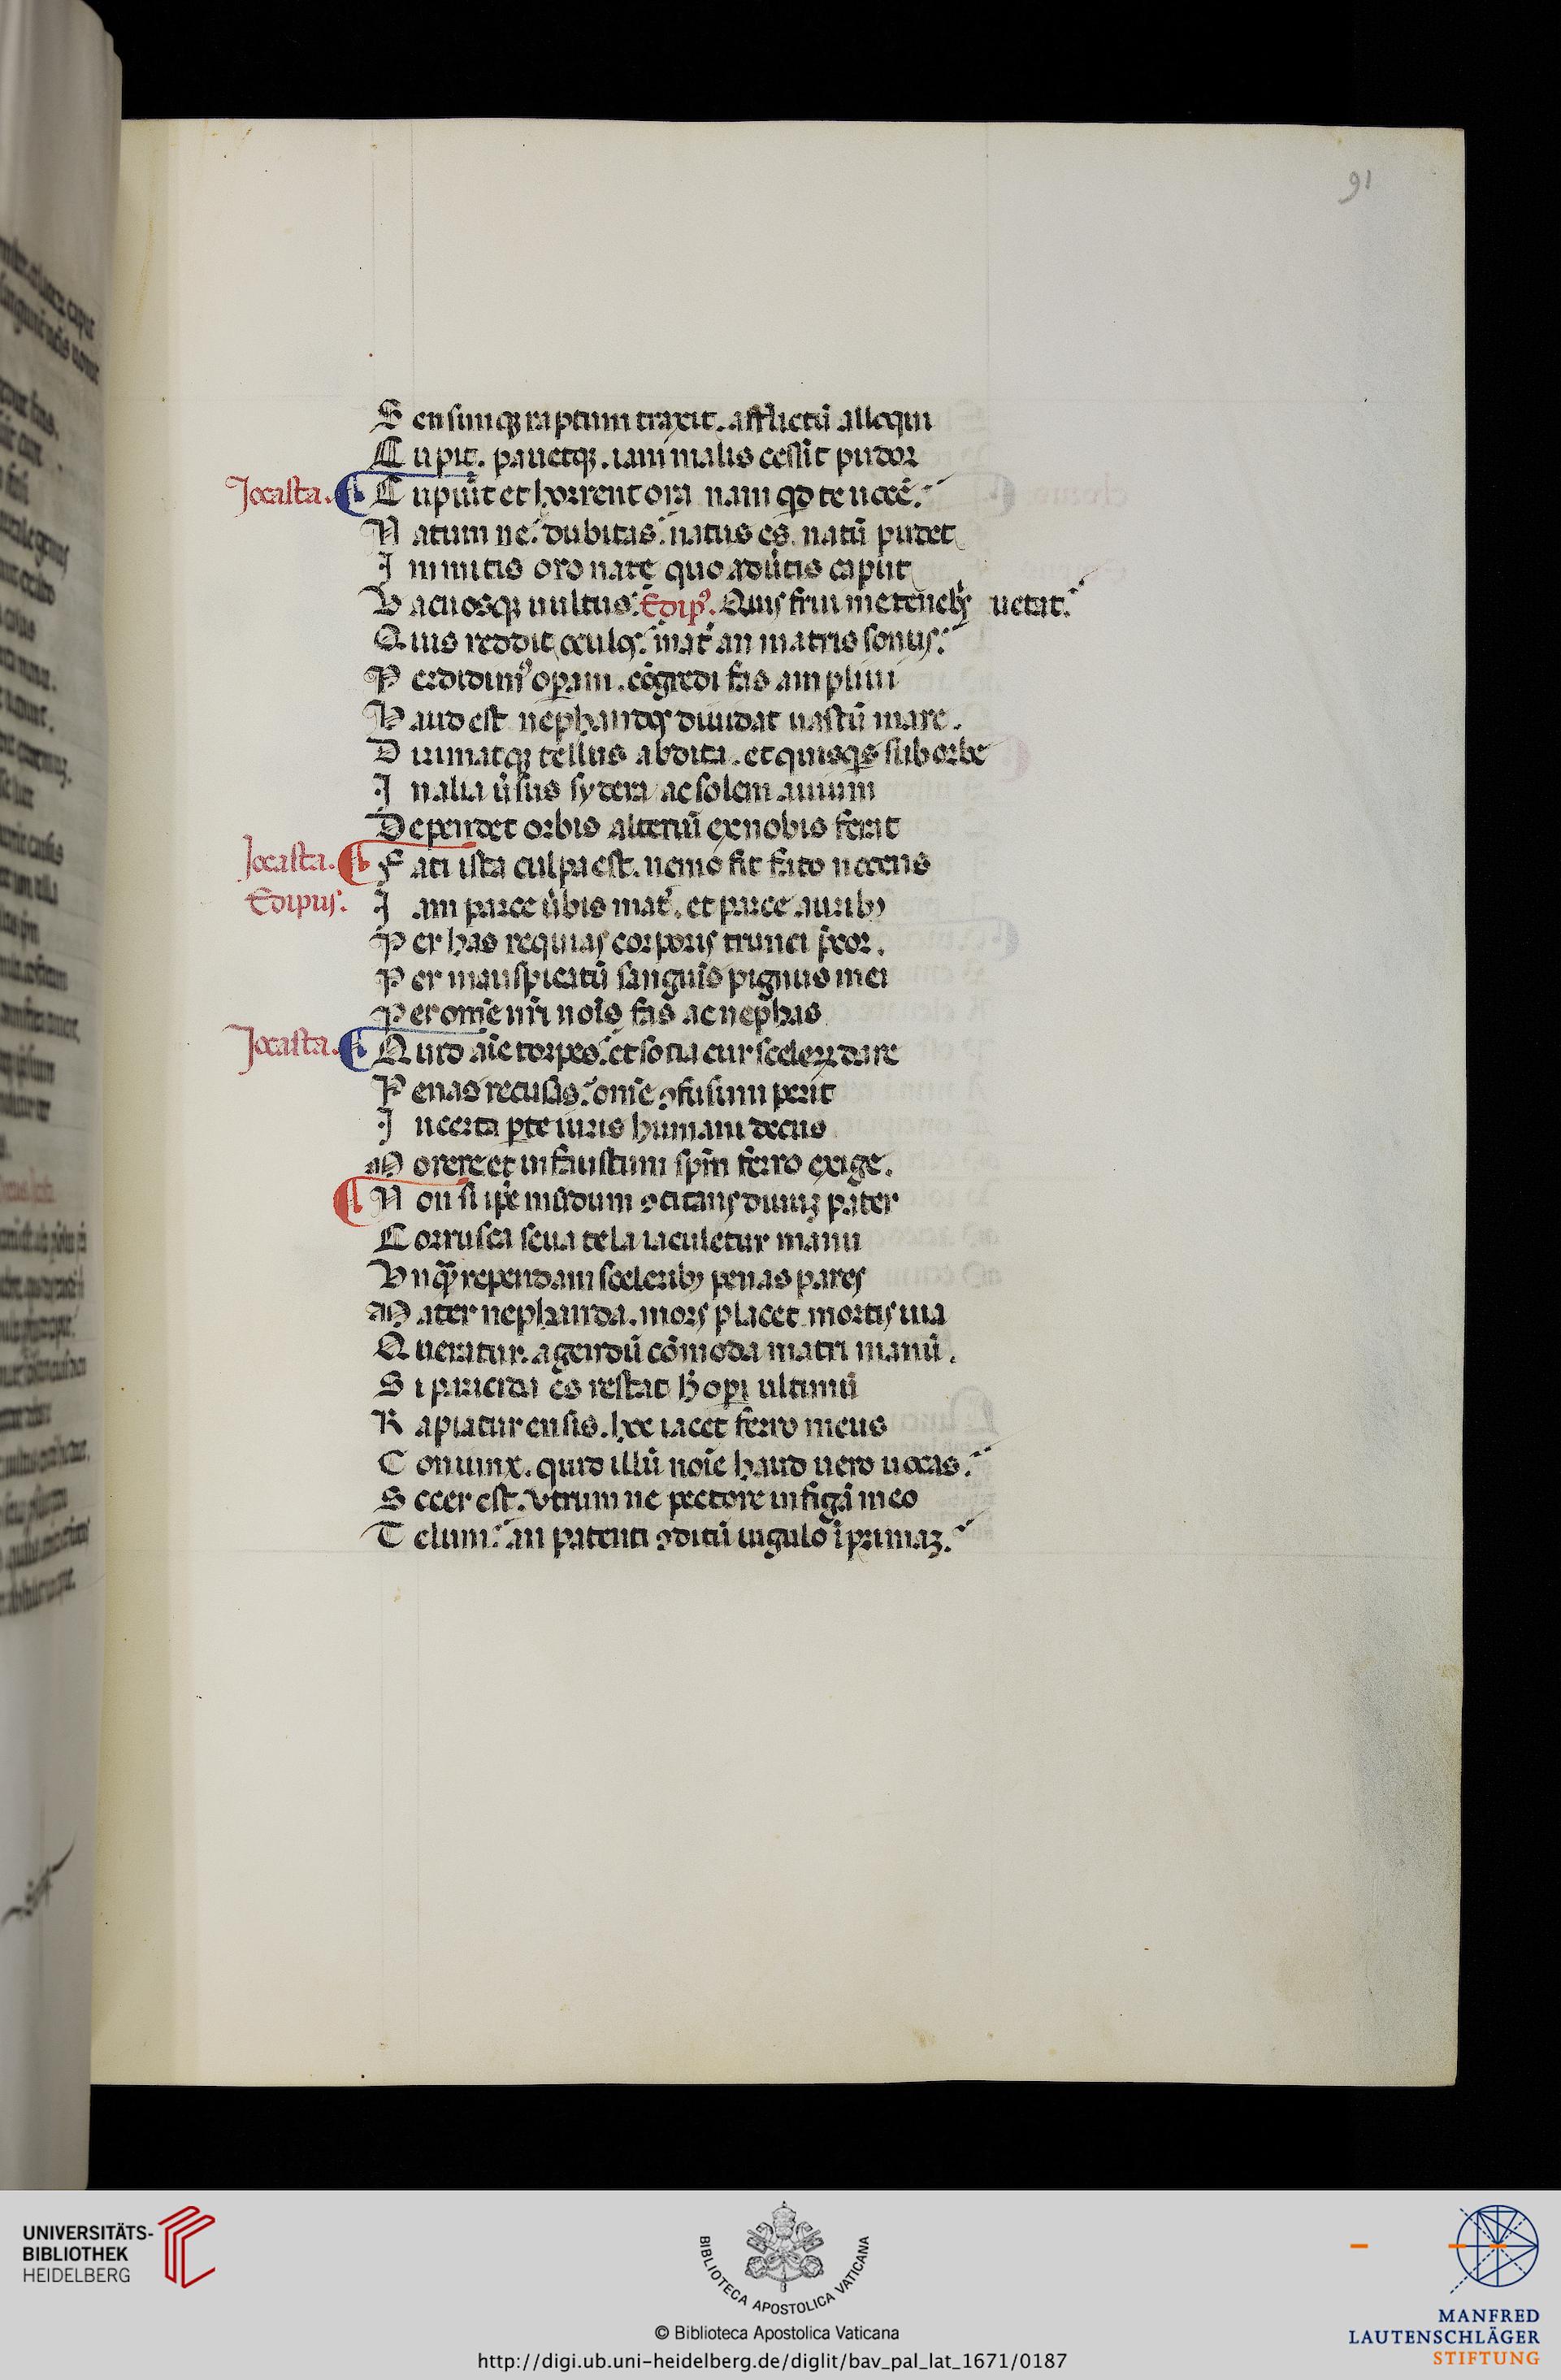 91
S ensumqꝫ raptum traxit. afflictū alloqui
C upit. pauetqꝫ. iam malis cessit pudor
Jocasta. C upiūt et horrent ora nam qd te uocē.
N atum ne. dubitas. natus es. natū pudet
I nmitis oro nate quo aduītis caput
V acuosqꝫ uultus. Edipꝰ. Quis frui me tenebꝭ uetat.
Q uis reddit oculꝭ. mat̄ an matris sonus.
P erdidimꝰ operam. cōgredi fas amplius
H aud est nephandꝭ diuidat uastū mare.
D irimatqꝫ tellus abdita. et quisqꝭ sub orbe
I n alia uīsus sydera ac solem auium
Dependet orbis alterū ex nobis ferat
Jocasta. F ati ista culpa est. nemo fit fato nocens
Edipus. I am parce ūbis mat̄. et parce auribꝫ
P er has reliquias corporis trunci p̄cor.
P er inauspicatū sanguīs pignus mei
P er omē nr̄i noīs fas ac nephas
Jocasta. Q uid aīe torpes. et socia cur scelerꝝ dare
P enas recusas. omē ꝯfusum perit
I ncerta pte iuris humani decus
M orere et infaustum spm̄ ferro exige.
N on si ipe mūdum ꝯcitans diuuꝫ pater
C orrusca seua tela iaculetur manu
V nq̄ rependam sceleribꝫ penas pares
M ater nephanda. mors placet mortis uia
Q ueratur. agendū cōmoda matri manū.
S i paricida es restat h̄ operi ultimū
R apiatur ensis. hoc iacet ferro meus
C oniunx. quid illū noīe haud uero uocas.
S ocer est. vtrum ne pectore infigā meo
T elum. an patenti ꝯditū iugulo īprimaꝫ.
UNIVERSITÄTS-
BIBLIOTHEK
HEIDELBERG
BIBLIOTECA APOSTOLICA VATICANA
© Biblioteca Apostolica Vaticana
http://digi.ub.uni-heidelberg.de/diglit/bav_pal_lat_1671/0187
MANFRED
LAUTENSCHLÄGER
STIFTUNG